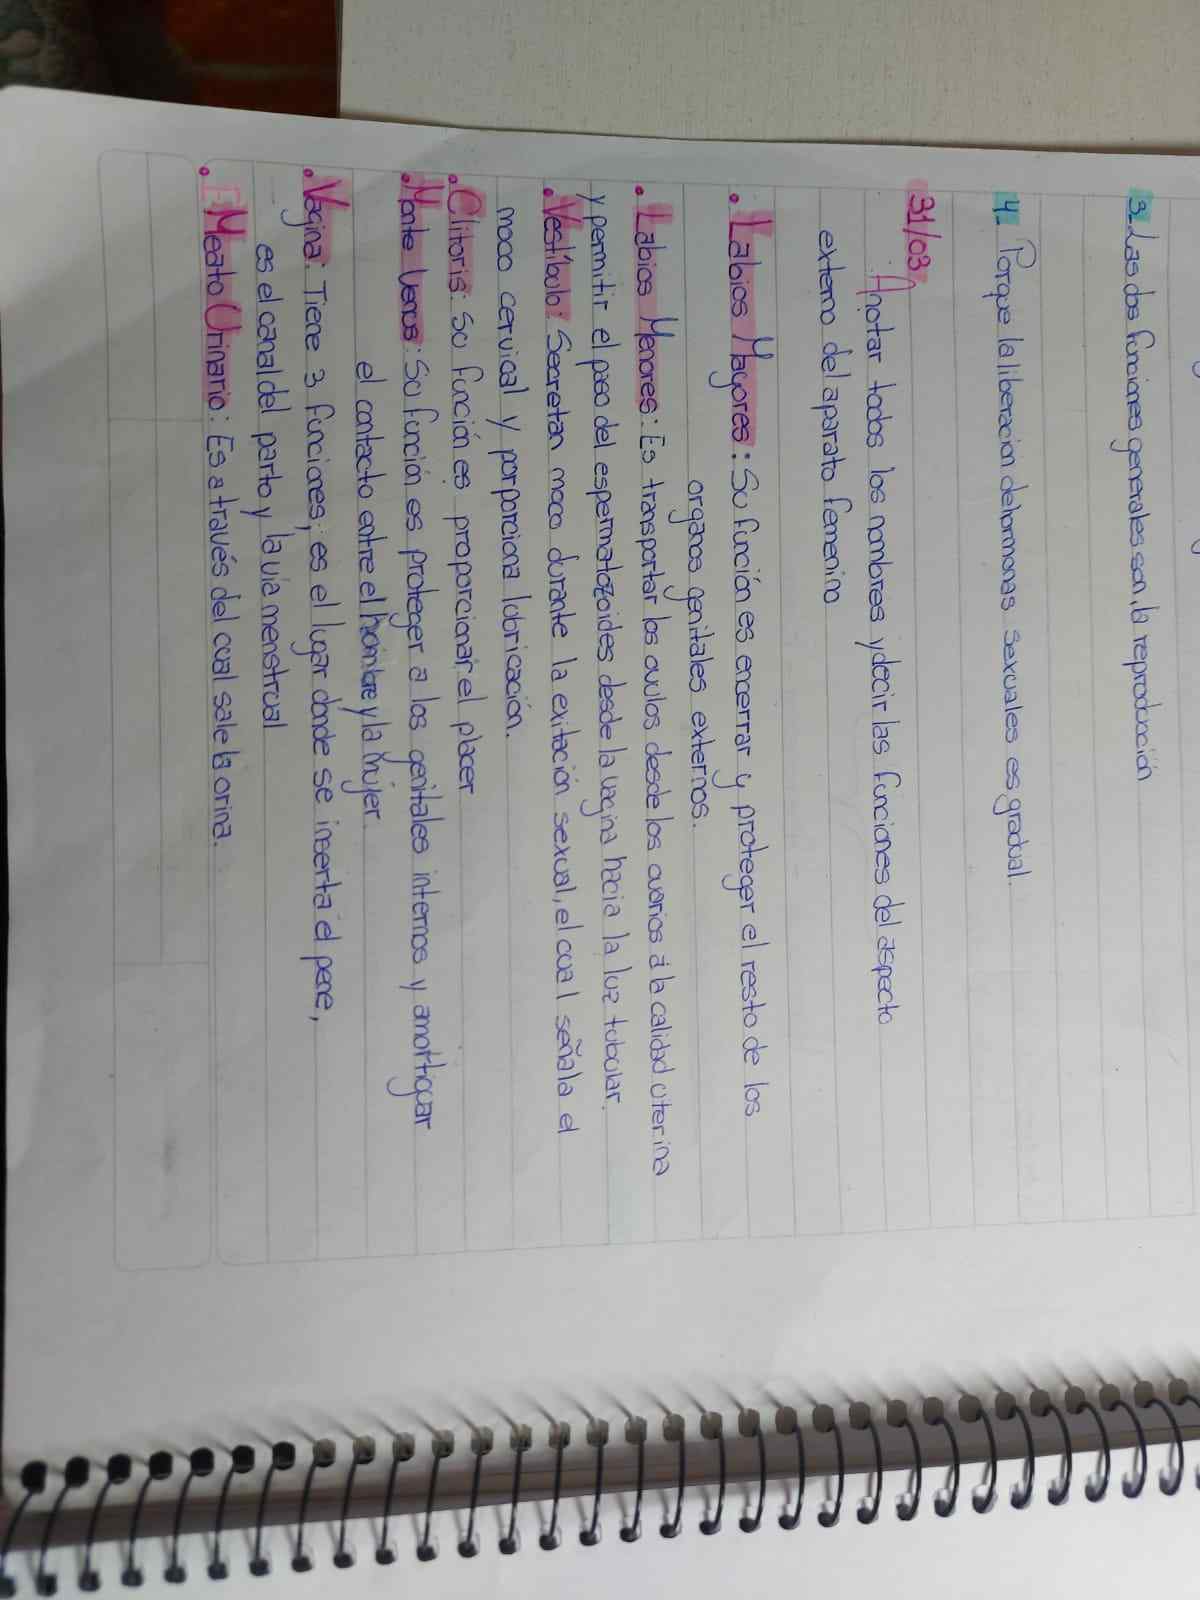 3. Las dos funciones generales son, la reproducción
4. Porque la liberación dehormonas sexuales es gradual.
31/03
Anotar todos los nombres y decir las funciones del aspecto
externo del aparato femenino
. Labios Mayores: Su función es encerrar y proteger el resto de los
organos genitales externos.
. Labios Menores: Es transportar los ovulos desde los ovarios a la calidad uterina
y permitir el paso del espermatozoides desde la vagina hacia la luz tubular.
. Vestíbulo: Secretan moco durante la exitación sexual, el cual señala el
moco cervical y porporciona lubricación.
. Clitoris: Su función es proporcionar el placer
. Monte Venus: Su función es proteger a los genitales internos y amortiguar
el contacto entre el hombre y la mujer.
. Vagina: Tiene 3 funciones; es el lugar donde se inserta el pene,
es el canal del parto y la via menstrual
. Meato Urinario: Es a través del cual sale la orina.